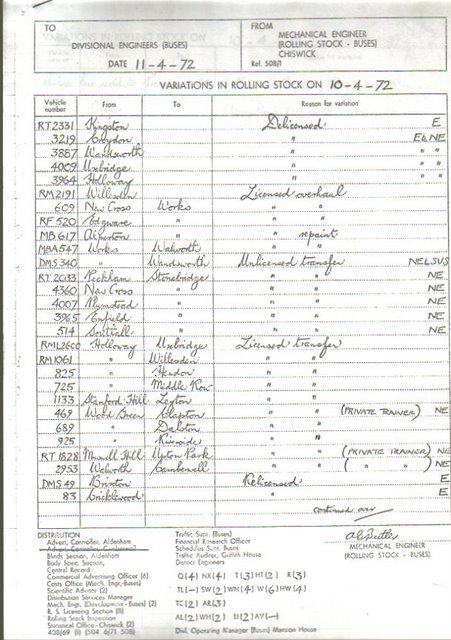 TO
DIVISIONAL ENGINEERS (BUSES)
DATE 11-4-72
FROM
MECHANICAL ENGINEER
(ROLLING STOCK - BUSES)
CHISWICK
Ref. 508/1
VARIATIONS IN ROLLING STOCK ON 10-4-72
Vehicle number From To Reason for variation
RT2331 Kingston Delicensed E
3219 Croydon " E& NE
3887 Wandsworth " " "
4009 Uxbridge " " "
3964 Holloway " " "
RM2191 Willesden Licensed overhaul
609 New Cross Works " "
RF520 Edgware " " "
MB617 Alperton " " repaint
MBA547 Works Walworth " "
DMS340 " Wandsworth Unlicensed transfer NELSUS
RT2033 Peckham Stonebridge " " NE
4360 New Cross " " " NE
4007 Plumstead " " " NE
3965 Enfield " " " NE
514 Southall " " " NE
RML2600 Holloway Uxbridge Licensed transfer
RM1061 " Willesden " "
825 " Hendon " "
725 " Middle Row " "
1133 Stamford Hill Leyton " "
469 Wood Green Clapton " " (PRIVATE TRAINER) NE
689 " Dalston " "
925 " Riverside " "
RT1828 Muswell Hill Upton Park " " (PRIVATE TRAINER) NE
2953 Walworth Camberwell " " ( " " ) NE
DMS49 Brixton Relicensed E
83 Cricklewood " E
continued over
DISTRIBUTION
Advert. Controller, Aldenham
Blinds Section, Aldenham
Body Spec. Section,
Central Record
Commercial Advertising Officer (6)
Costs Office (Mech. Engr.-Buses)
Scientific Adviser (2)
Distribution Services Manager
Mech. Engr. (Development - Buses) (2)
R. S. Licensing Section (8)
Rolling Stock Inspection
Statistical Office - Chiswick (2)
Traffic Supt. (Buses)
Financial Research Officer
Schedules Supt. Buses
Traffic Auditor, Griffith House
District Engineers
Q(4) NX(4) T(3) HT(2) R(3)
TL(-) SW(2) WN(4) W(6) HW(4)
TC(2) AR(3)
AL(2) WH(2) U(2) AV(-)
Divl. Operating Manager (Buses) Mansion House
MECHANICAL ENGINEER
(ROLLING STOCK - BUSES)